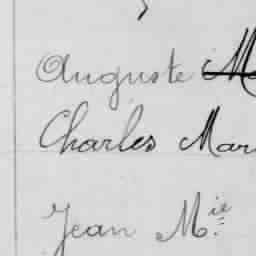 Auguste
Charles Mar
Jean M.ie